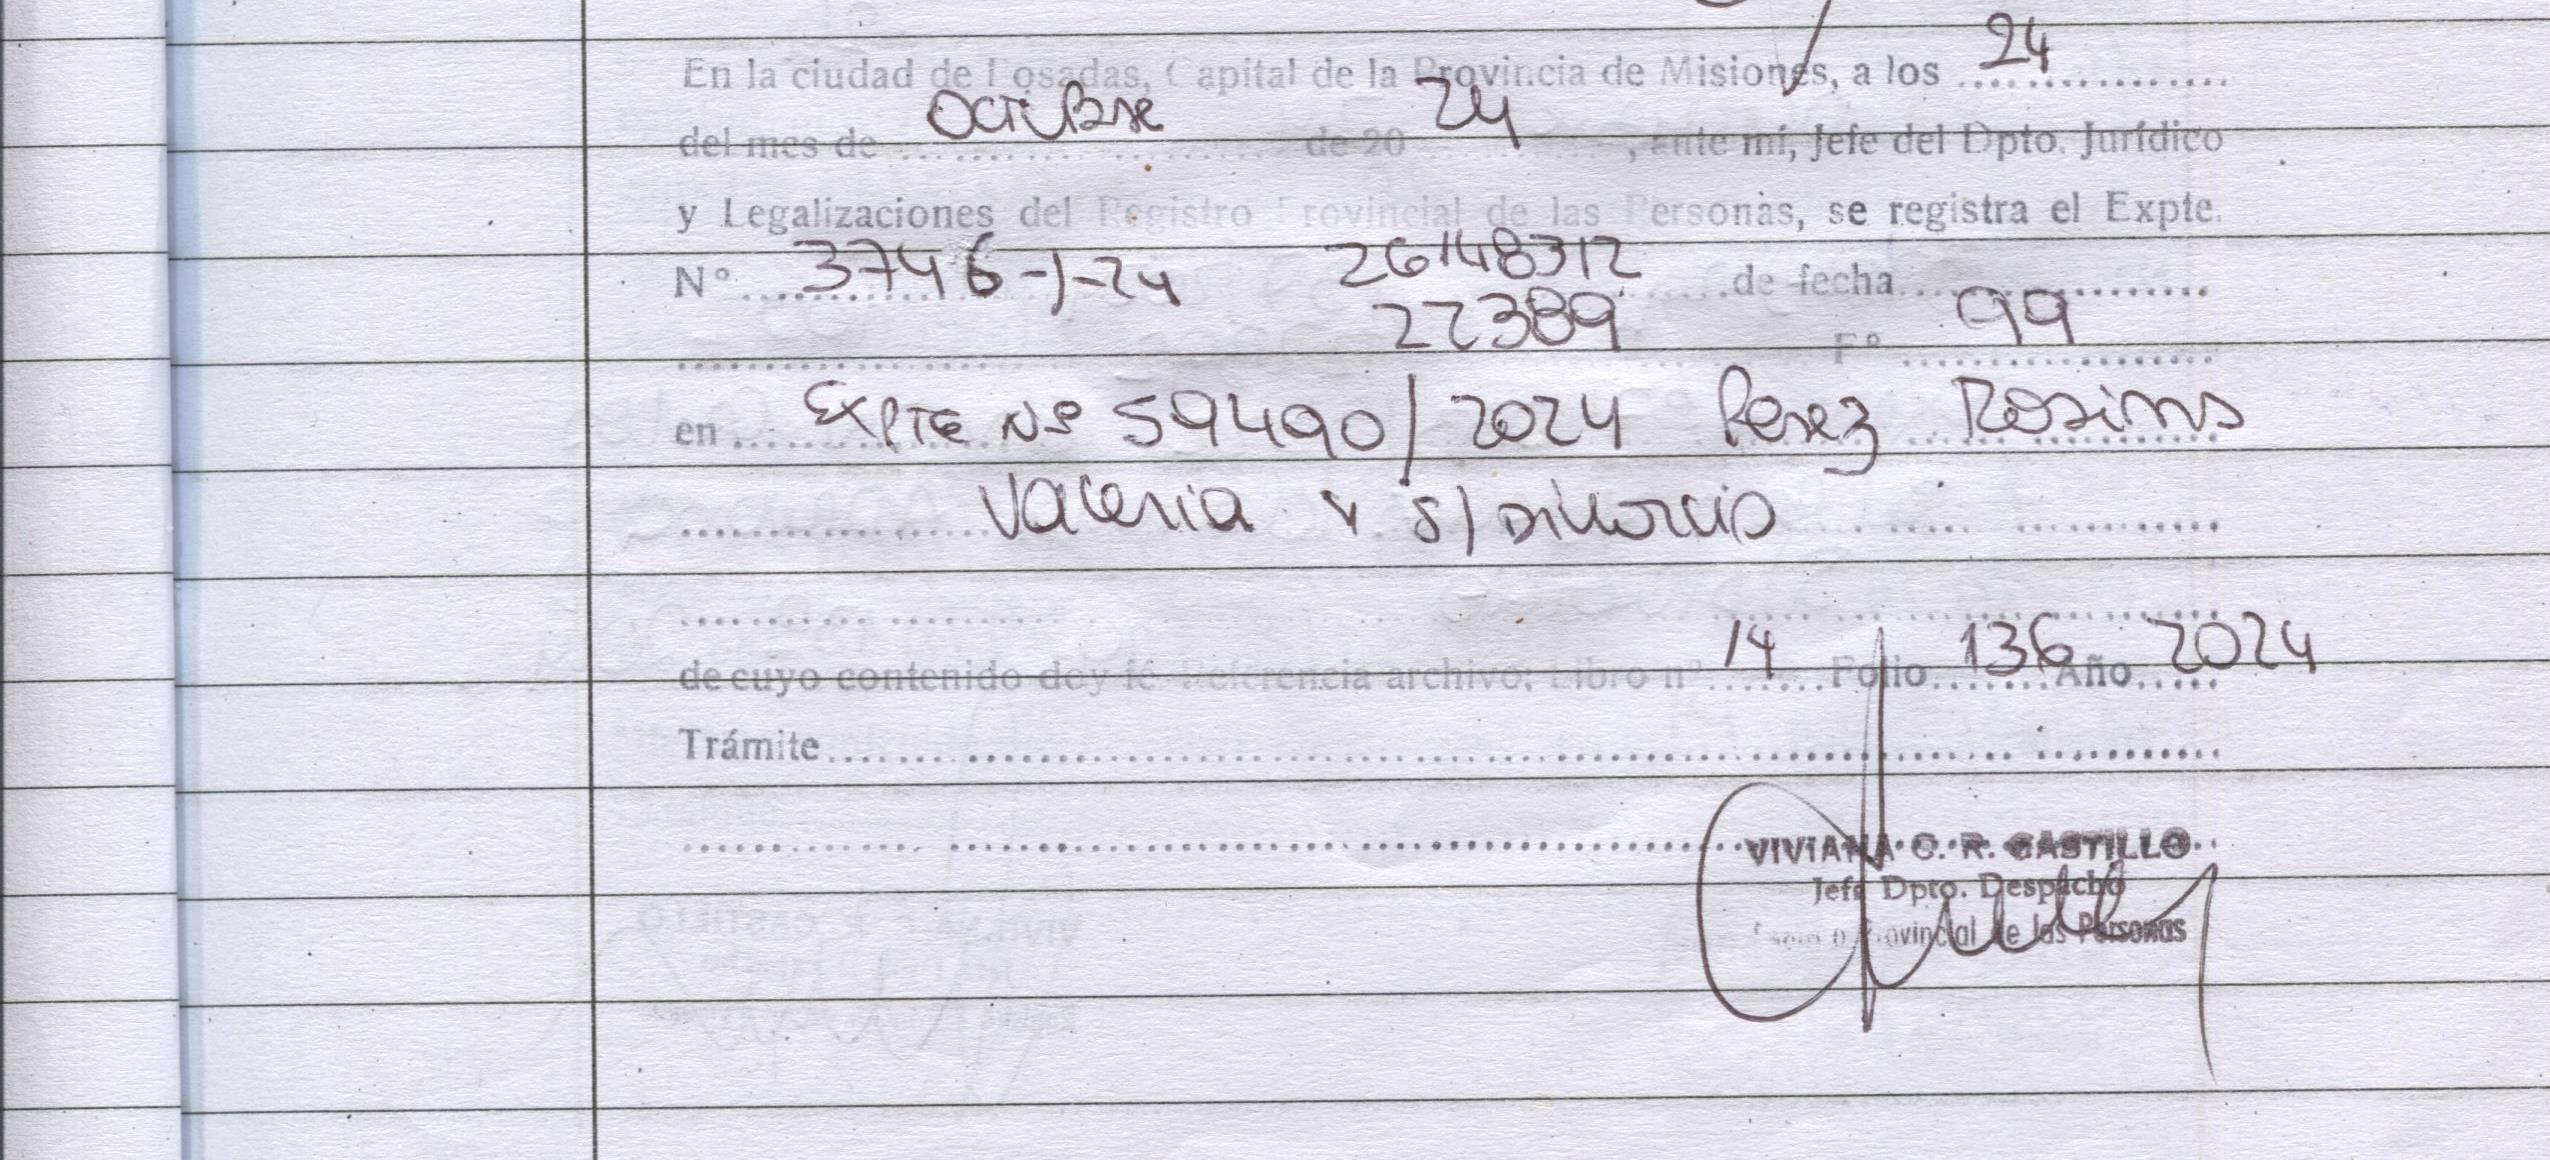 En la ciudad de Posadas, Capital de la Provincia de Misiones, a los 24
del mes de Octubre de 20 24, ante mí, Jefe del Dpto. Jurídico
y Legalizaciones del Registro Provincial de las Personas, se registra el Expte.
Nº 3746-J-24 26148312 de fecha
22389 Fº 99
en Expte Nº 59490/2024 Perez Rosima
Valeria y s/ Divorcio
de cuyo contenido doy fé Referencia archivo: Libro nº 14 Folio 136 Año 2024
Trámite
VIVIANA C. R. CASTILLO
Jefe Dpto. Despacho
Provincial de las Personas